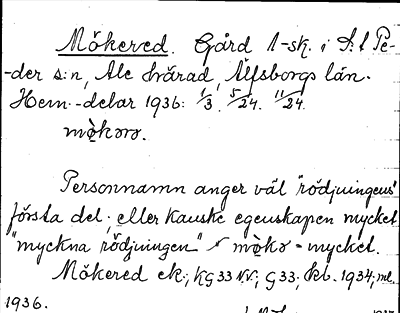 Mökered. Gård 1-sk. i S:t Pe-
-der s:n, Ale härad, Älfsborgs län.
Hem.-delar 1936: 1/3. 5/24. 11/24.
mø̀kərə.
Personnamn anger väl "rödjningens"
första del; eller kanske egenskapen mycket
"myckna rödjningen" mø̀kə = mycket.
Mökered ek., KG33NV, G33; kb. 1934; ml
1936.